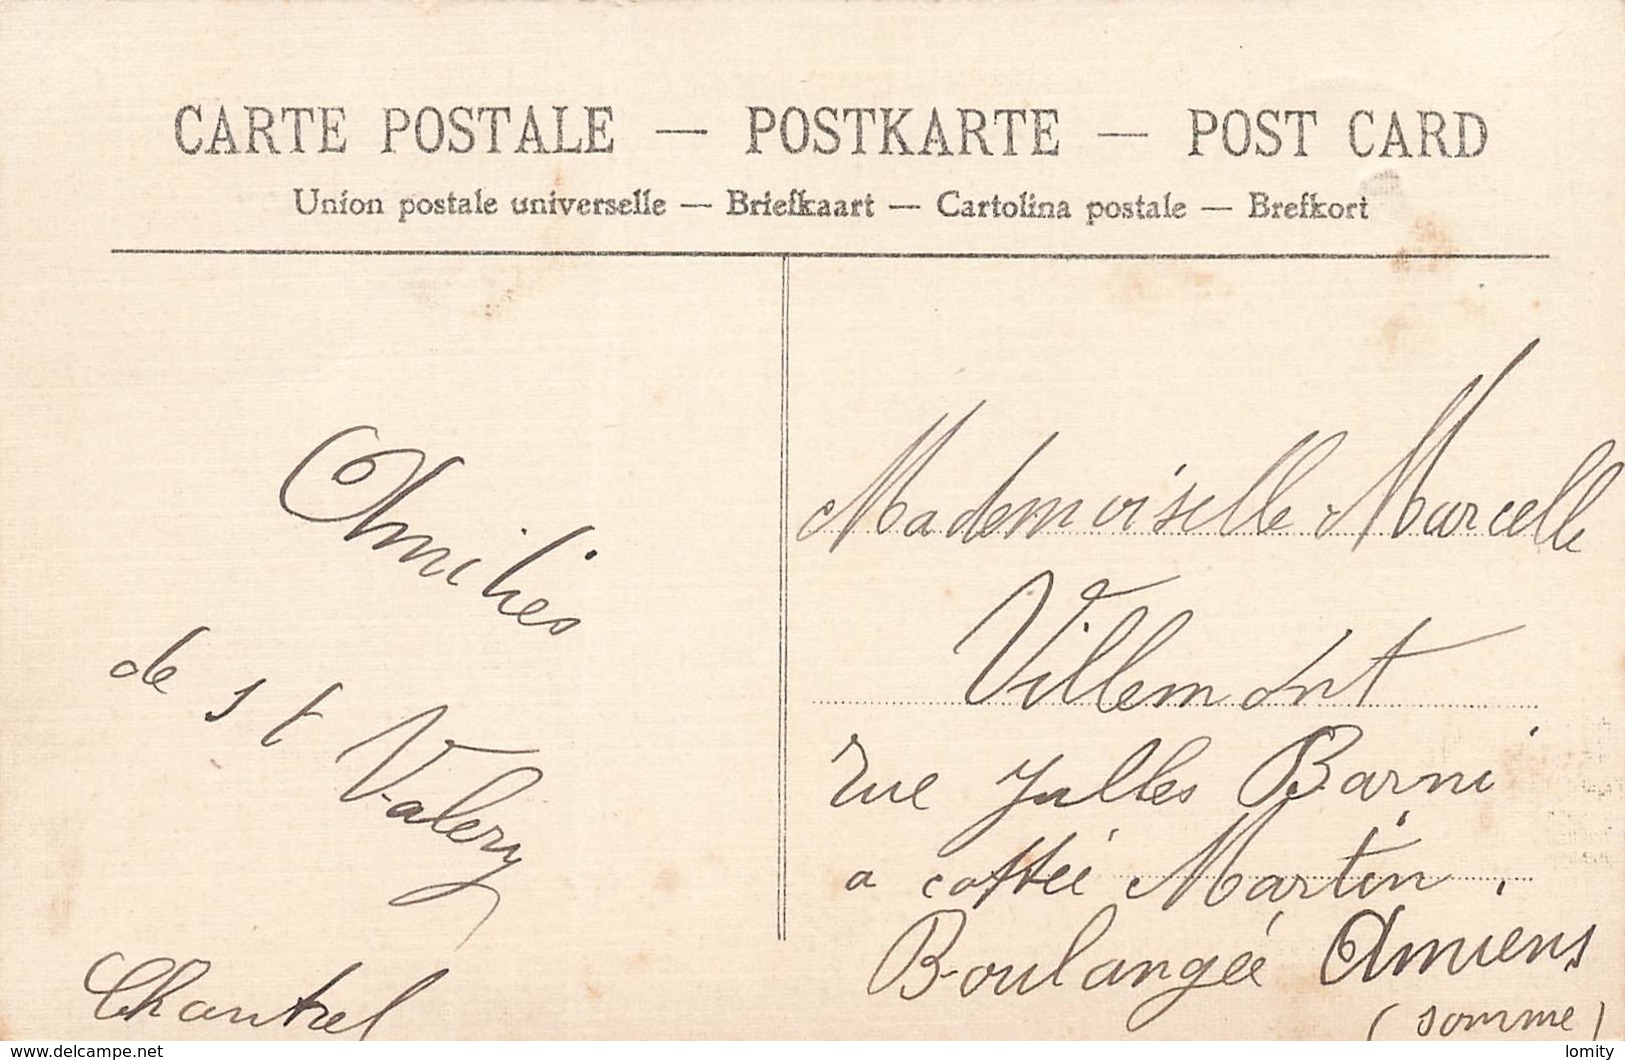 CARTE POSTALE — POSTKARTE — POST CARD
Union postale universelle — Briefkaart — Cartolina postale — Brefkort
Amitiés
de st Valery
Chantrel
Mademoiselle Marcelle
Villemont
rue Julles Barni
a cottée Martin
Boulangée Amiens
(somme)
delcampe.net
lomity